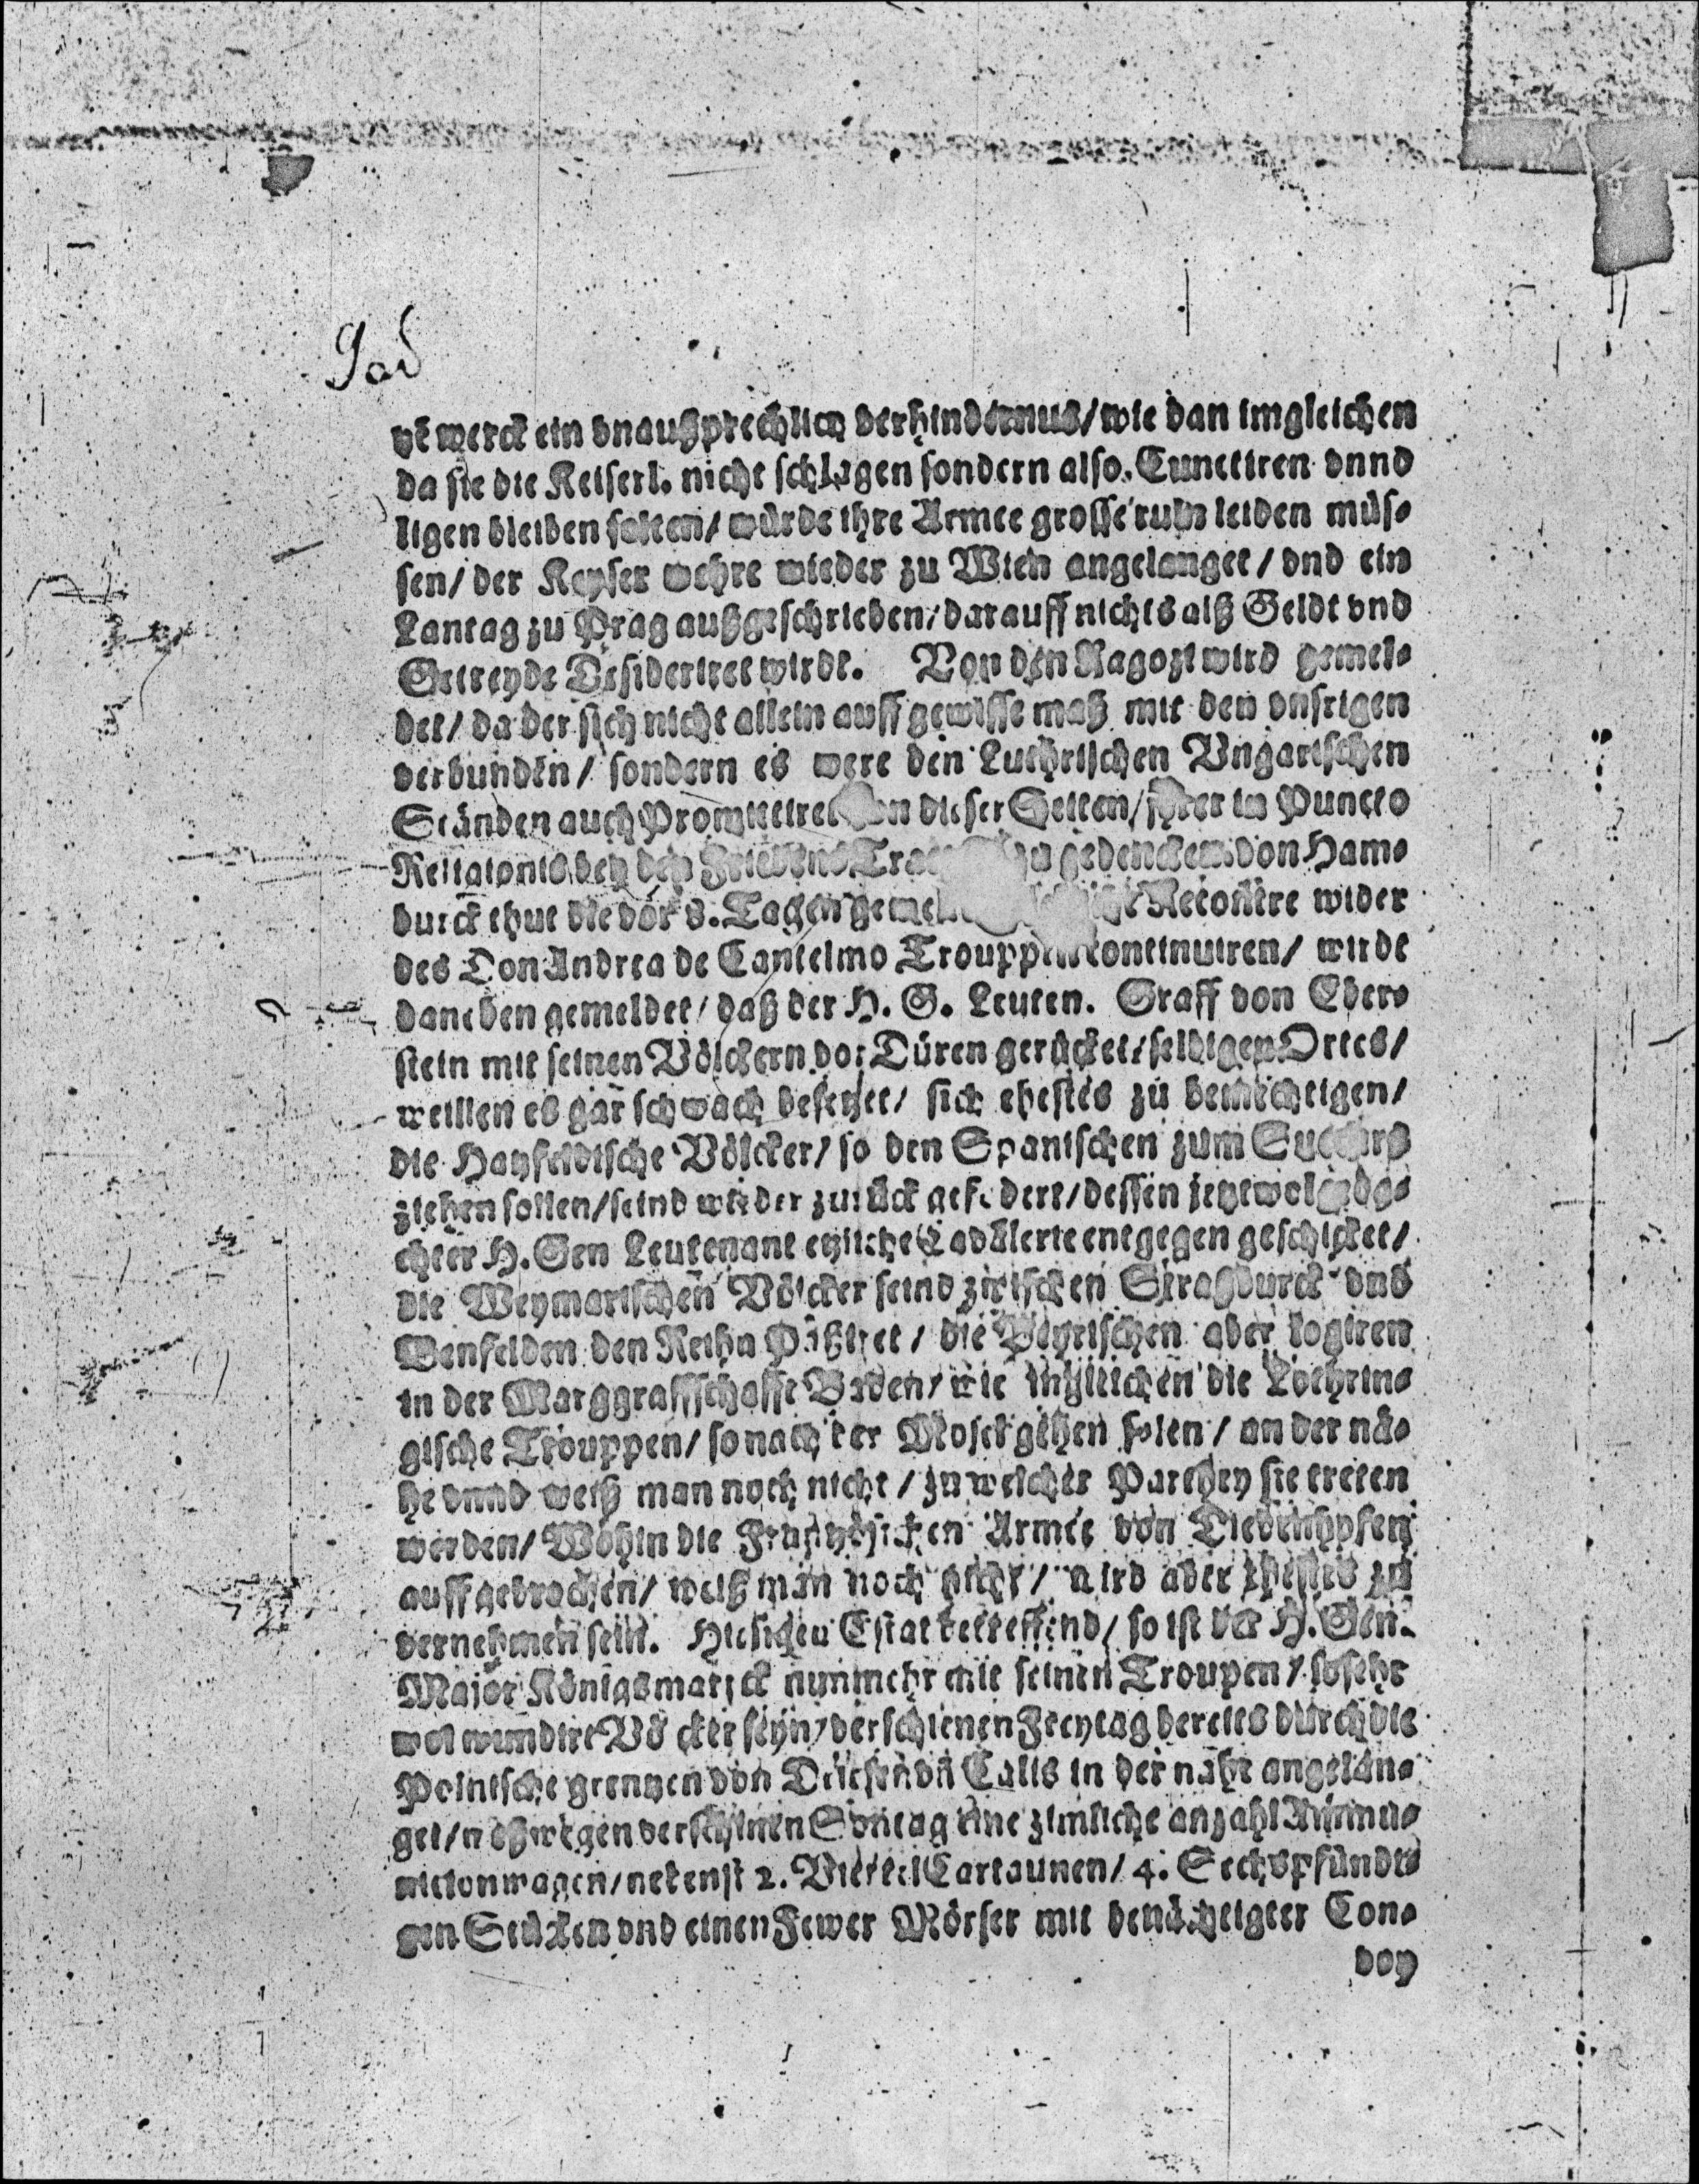 yẽ werck ein vnaußprechlich verhindernus/ wie dan imgleichen
da sie die Keiserl. nicht schlagen sondern also. Cunctiren vnnd
ligen bleiben solten/ würde ihre Armee grosse ruin leiden müs-
sen/ der Keyser wehre wieder zu Wien angelanget/ vnd ein
Lantag zu Prag außgeschrieben/ darauff nichts alß Geldt vnd
Getreyde Desideriret wirdt. Von den Ragozi wird gemel-
det/ da der sich nicht allein auff gewisse maß mit den vnsrigen
verbunden/ sondern es were den Luthrischen Vngarischen
Ständen auch Promittiret von dieser Seiten/ ihrer in Puncto
Religionis bey den Friedens gedencken. von Ham-
burck thut die vor 8. Tagen Recontre wider
des Don Andrea de Cantelmo Trouppen continuiren/ wirdt
daneben gemeldet/ daß der H. G. Leuten. Graff von Eber-
stein mit seinen Völckern vor Düren gerücket/ selbigen Ortes/
weillen es gar schwach besetzet/ sich ehestes zu bemächtigen/
die Hatzfeldische Völcker/ so den Spanischen zum Succurs
ziehen sollen/ seind wieder zurück gefodert/ dessen
chter H. Gen Leutenant etzliche Cavallerie entgegen geschicket/
die Weymarischen Völcker seind zwischen Straßburck vnd
Benfelden den Reihn Paßiret/ die Beyrischen aber logiren
in der Marggraffschafft Baden/ wie ingleichen die Lothrin-
gische Trouppen/ so nach der Mosel gehen solen/ an der nä-
he vnnd weiß man noch nicht/ zu welcher Parthey sie treten
werden/ Wohin die Frantzösischen Armee von Diedenhofen
auffgebrochen/ weiß man noch nicht/ wird aber ehestes zu
vernehmen sein. Hiesigen Estat betreffend/ so ist der H. Gen.
Major Königsmarck nunmehr mit seinen Troupen/ so sehr
wol mundirt Völcker seyn/ verschienen Freytag bereits durch die
Polnische grentzen von Calis in der nähe angelan-
get/ verschienen Sontag eine zimliche anzahl Ammu-
nitionwagen/ nebenst 2. Viertel Cartaunen/ 4. Sechspfündi-
gen Stücken vnd einen Fewer Mörser mit benöchtigter Con-
voy